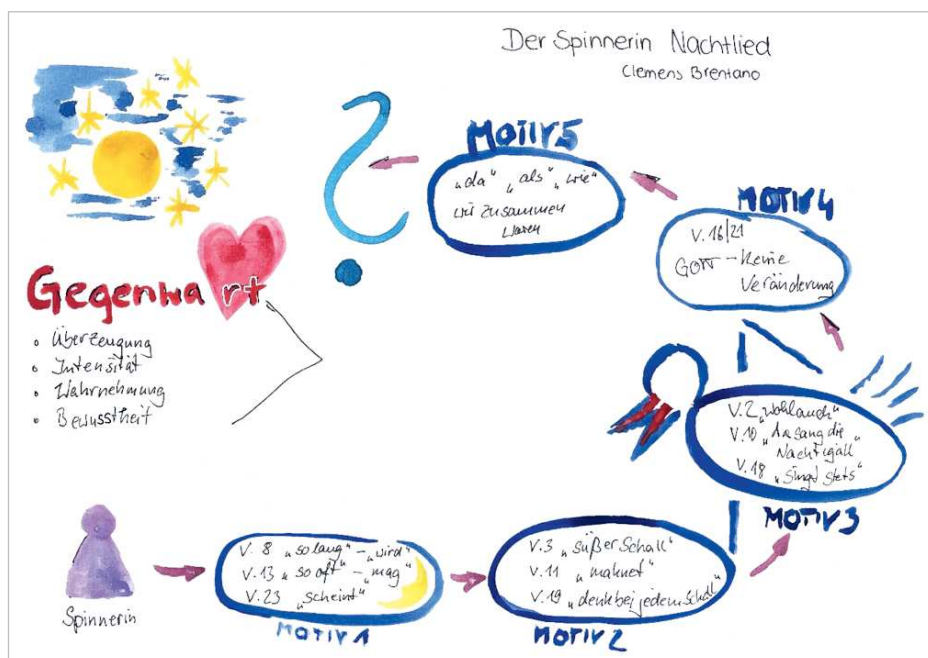 Der Spinnerin Nachtlied
Clemens Brentano
MOTIV 5
„da“ „als“ „wie“
wir zusammen
waren
MOTIV 4
V. 16/21
GOTT – keine
Veränderung
Gegenwart
• Überzeugung
• Intensität
• Wahrnehmung
• Bewusstheit
V. 2 „wohl auch“
V. 10 „da sang die
Nachtigall“
V. 18 „singt stets“
MOTIV 3
V. 8 „solang“ – „wird“
V. 13 „so oft“ – „mag“
V. 23 „scheint“
MOTIV 1
V. 3 „süßer Schall“
V. 11 „mahnet“
V. 19 „denk bei jedem Schall“
MOTIV 2
Spinnerin